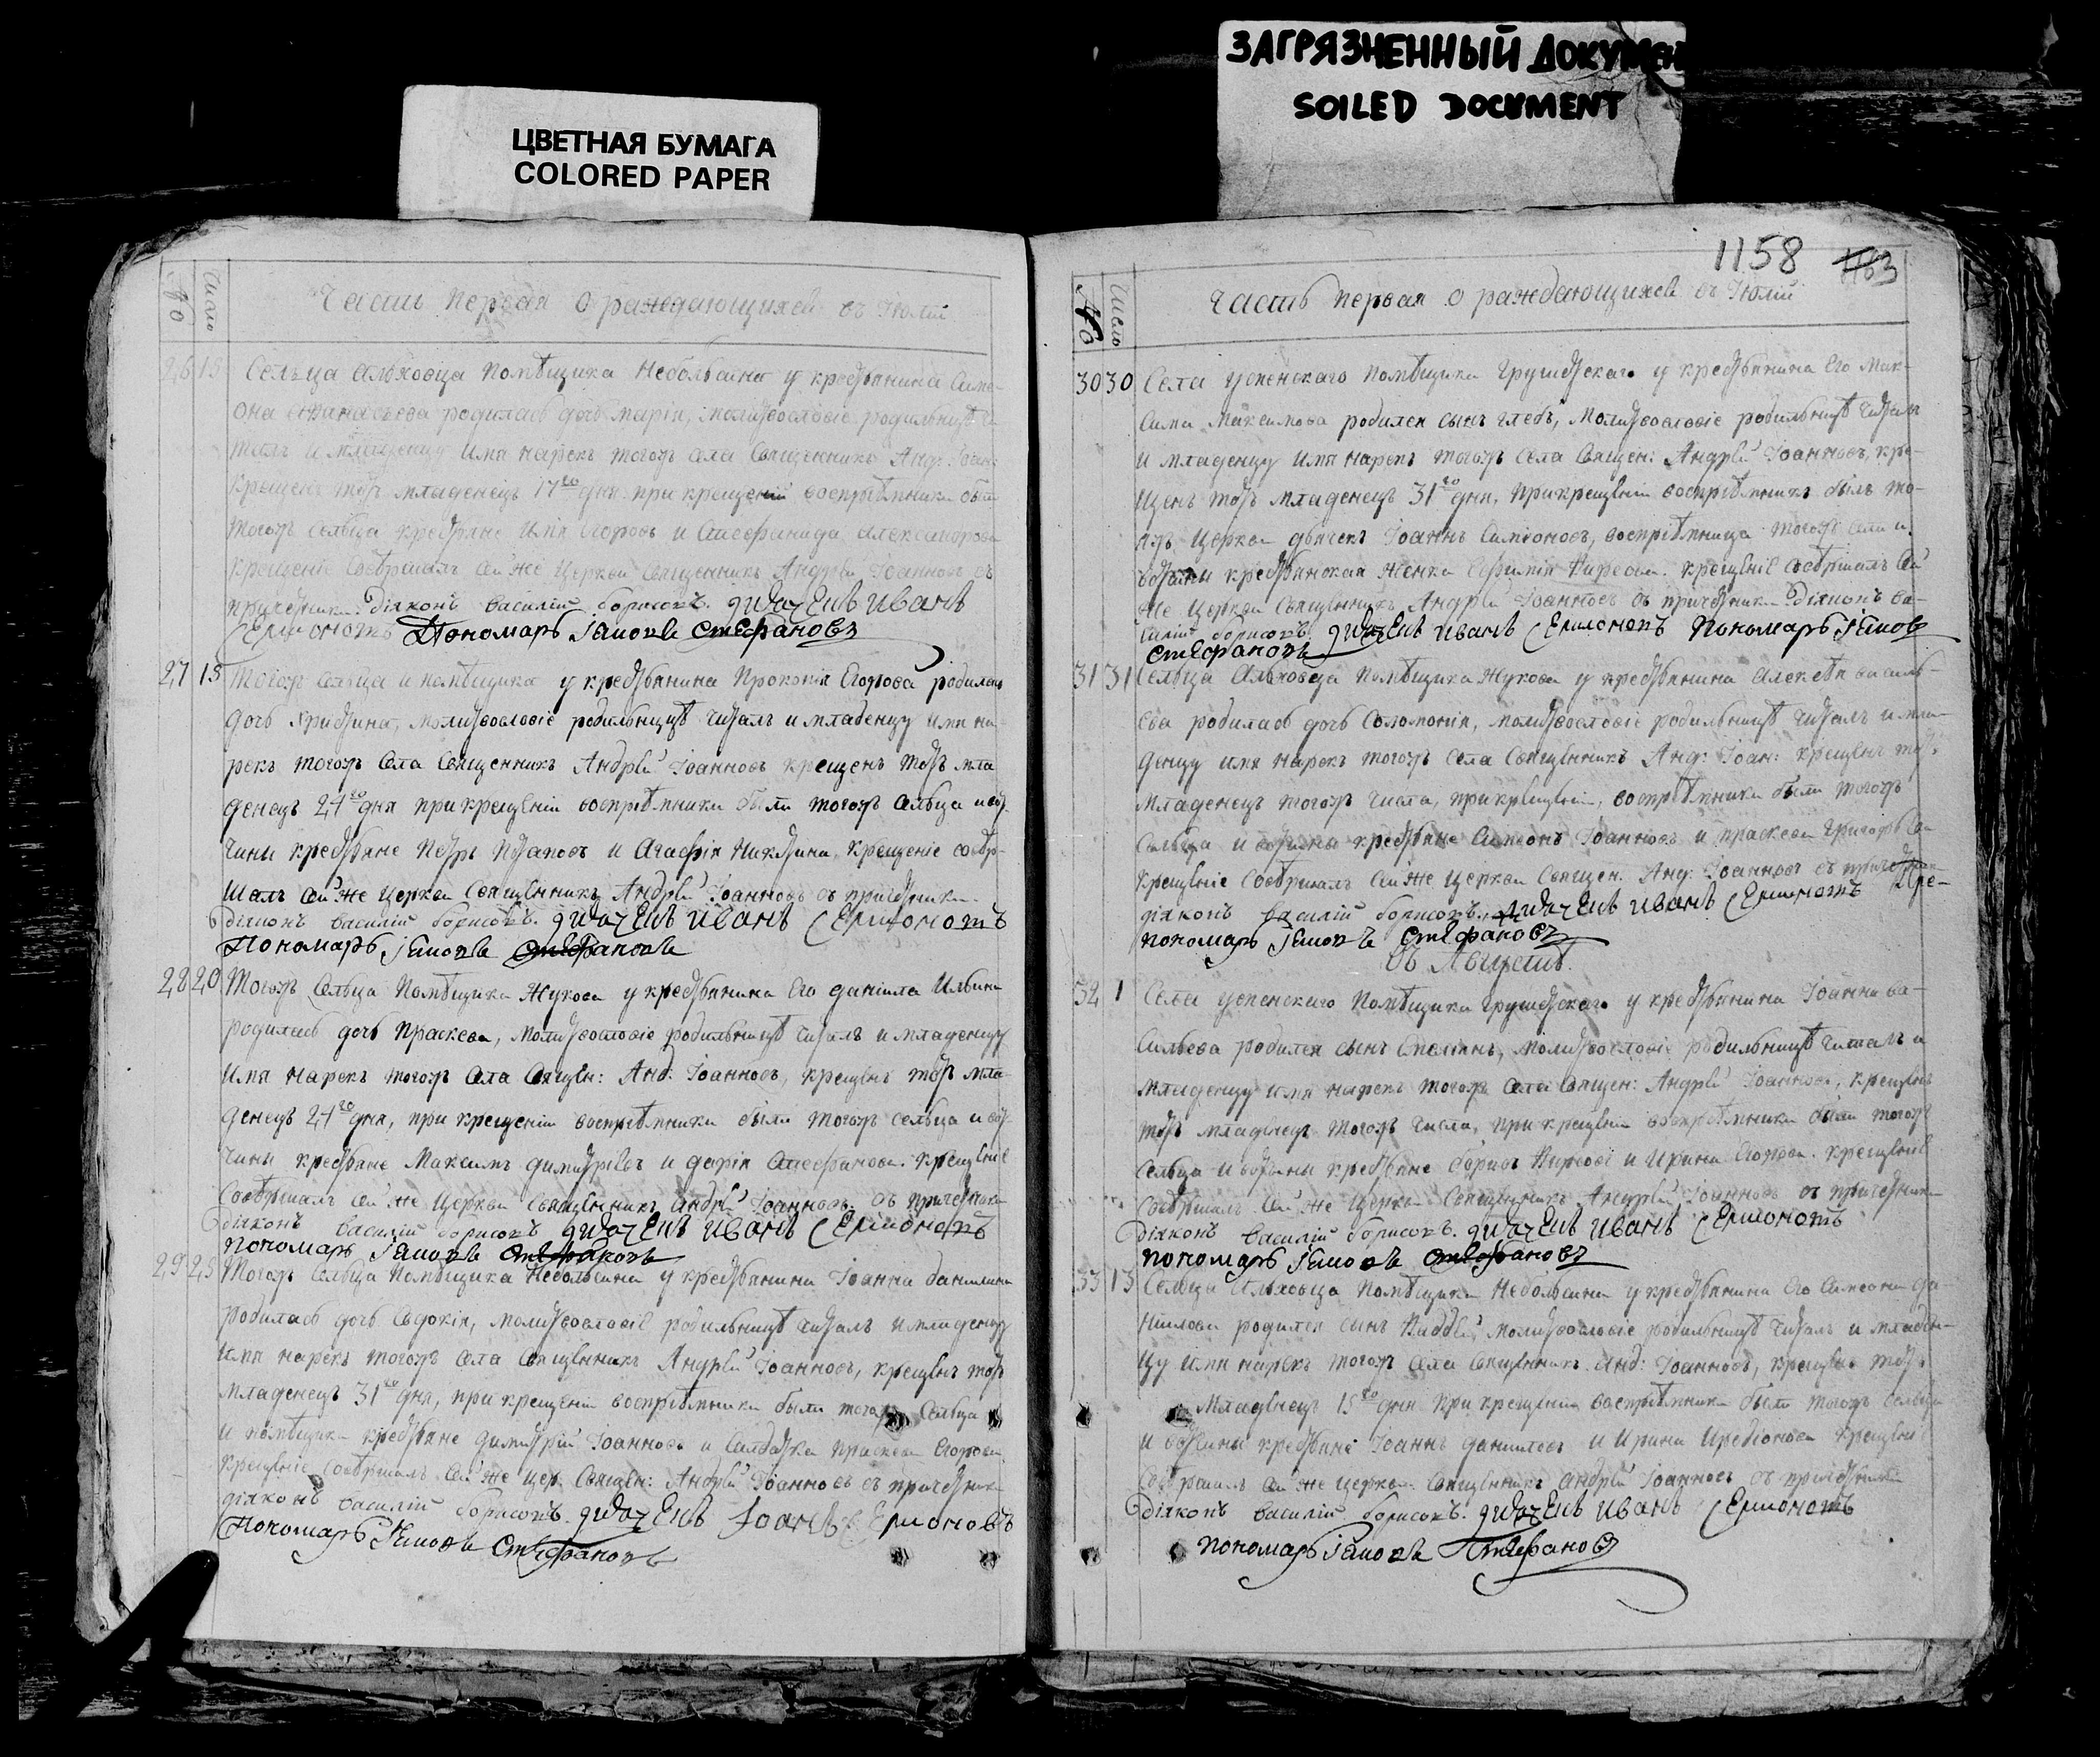 ЗАГРЯЗНЕННЫЙ ДОКУМЕН
SOILED DOCUMENT
ЦВЕТНАЯ БУМАГА
COLORED PAPER
Число
Часть первая о раждающихся въ Іюлѣ
26 15 Сельца Альховца помѣщика Небольсина у крестьянина Симе-
она Афанасьева родилась дочь марія, молитвословіе родильницѣ чи
талъ и младенцу имя нарекъ тогожъ села священникъ Анд: Іоан:
крещенъ тотъ младенецъ 17го дня при крещеніи воспріѣмники были
тогожъ сельца крестьяне Егоровъ и Стефанида Александрова
крещеніе совѣршалъ сей же церкви священникъ Андрѣй Іоанновъ съ
причетники. діяконъ василій борисовъ. дьячекъ иванъ
Симѳоновъ Пономарь Іяковъ стефановъ
27 15 Тогожъ сельца и помѣщика у крестьянина Прокопія Егорова родилась
дочь христина, молитвословіе родильницѣ читалъ и младенцу имя на-
рекъ тогожъ села священникъ Андрѣй Іоанновъ крещенъ тотъ мла
денецъ 24го дня при крещеніи воспріѣмники были тогожъ сельца и вот-
чины крестьяне Петръ Потаповъ и Агафія Никитина. крещеніе совѣр-
шалъ сей же церкви священникъ Андрѣй Іоанновъ съ причетники.
діяконъ василій борисовъ. дьячекъ иванъ Симѳоновъ
Пономарь Іяковъ стефановъ
28 20 Тогожъ сельца помѣщика Жукова у крестьянина Его даніила Ильина
родилась дочь праскева, молитвословіе родильницѣ читалъ и младенцу
имя нарекъ тогожъ села священ: Анд: Іоанновъ, крещенъ тотъ мла-
денецъ 24го дня, при крещеніи воспріѣмники были тогожъ сельца и вот-
чины крестьяне Максимъ димитріевъ и дарія Стефанова. крещеніе
совѣршалъ сей же церкви священникъ андрѣй Іоанновъ. съ причетники
діяконъ василій борисовъ дьячекъ иванъ Симѳоновъ
пономарь Іяковъ стефановъ
29 25 Тогожъ сельца помѣщика Небольсина у крестьянина Іоанна данилина
родилась дочь Евдокія, молитвословіе родильницѣ читалъ и младенцу
имя нарекъ тогожъ села священникъ Андрѣй Іоанновъ, крещенъ тотъ
младенецъ 31го дня, при крещеніи воспріѣмники были тогожъ сельца
и помѣщика крестьяне димитрій Іоанновъ и салдатка праскева Егорова.
крещеніе совѣршалъ сей же цер: священ: Андрѣй Іоанновъ съ причетники
діяконъ василій борисовъ. дьячекъ Іоанъ Симѳоновъ
Пономарь Іяковъ Стефановъ
1158 1163
Число
Часть первая о раждающихся въ Іюлѣ
30 30 Села успенскаго помѣщика Грушетскаго у крестьянина Его Мак-
сима Максимова родился сынъ глебъ, молитвословіе родильницѣ читалъ
и младенцу имя нарекъ тогожъ села священ: Андрѣй Іоанновъ, кре-
щенъ тотъ младенецъ 31го дня, прикрещеніи воспріѣмникъ былъ то-
яжъ церкви дьячекъ Іоаннъ Симѳоновъ, воспріѣмница тогожъ села и
вотчины крестьянская женка Кирѣева. крещеніе совѣршалъ сей
же церкви священникъ Андрѣй Іоанновъ съ причетники. діяконъ ва-
силій борисовъ дьячекъ иванъ Симѳоновъ пономарь Іяковъ
стефановъ
31 31 Сельца Альховца помѣщика Жукова у крестьянина алексѣя василь-
ева родилась дочь Соломонія, молитвословіе родильницѣ читалъ и мла-
денцу имя нарекъ тогожъ села священникъ Анд: Іоан: крещенъ тотъ
младенецъ тогожъ числа, прикрещеніи, воспріѣмники были тогожъ
сельца и вотчины крестьяне Симѳонъ Іоанновъ и праскева Григорьева
крещеніе совѣршалъ сей же церкви священ. Анд: Іоанновъ съ причетники
діяконъ василій борисовъ. дьячекъ иванъ Симѳоновъ
пономарь Іяковъ стефановъ
Въ Августѣ.
32 1 Села успенскаго помѣщика Грушетскаго у крестьянина Іоанна ва-
сильева родился сынъ молитвословіе родильницѣ читалъ и
младенцу имя нарекъ тогожъ села священ: Андрѣй Іоанновъ, крещенъ
тотъ младенецъ тогожъ числа, при крещеніи воспріѣмники были тогожъ
сельца и вотчины крестьяне борисъ Кирѣевъ и Ирина Егорова. крещеніе
совѣршалъ сей же церкви священникъ Андрѣй Іоанновъ съ причетники
діяконъ василій борисовъ. дьячекъ иванъ Симѳоновъ
пономарь Іяковъ стефановъ
33 13 Сельца Альховца помѣщика Небольсина у крестьянина Его Симеона да-
ниилова родился сынъ молитвословіе родильницѣ читалъ и младен-
цу имя нарекъ тогожъ села священникъ анд: Іоанновъ, крещенъ тотъ
младенецъ 15го дня при крещеніи воспріѣмники были тогожъ сельца
и вотчины крестьяне Іоаннъ даниловъ и Ирина крещеніе
совѣршалъ сей же церкви священникъ андрѣй Іоанновъ съ причетники
діяконъ василій борисовъ. дьячекъ иванъ Симѳоновъ
пономарь Іяковъ Стефановъ